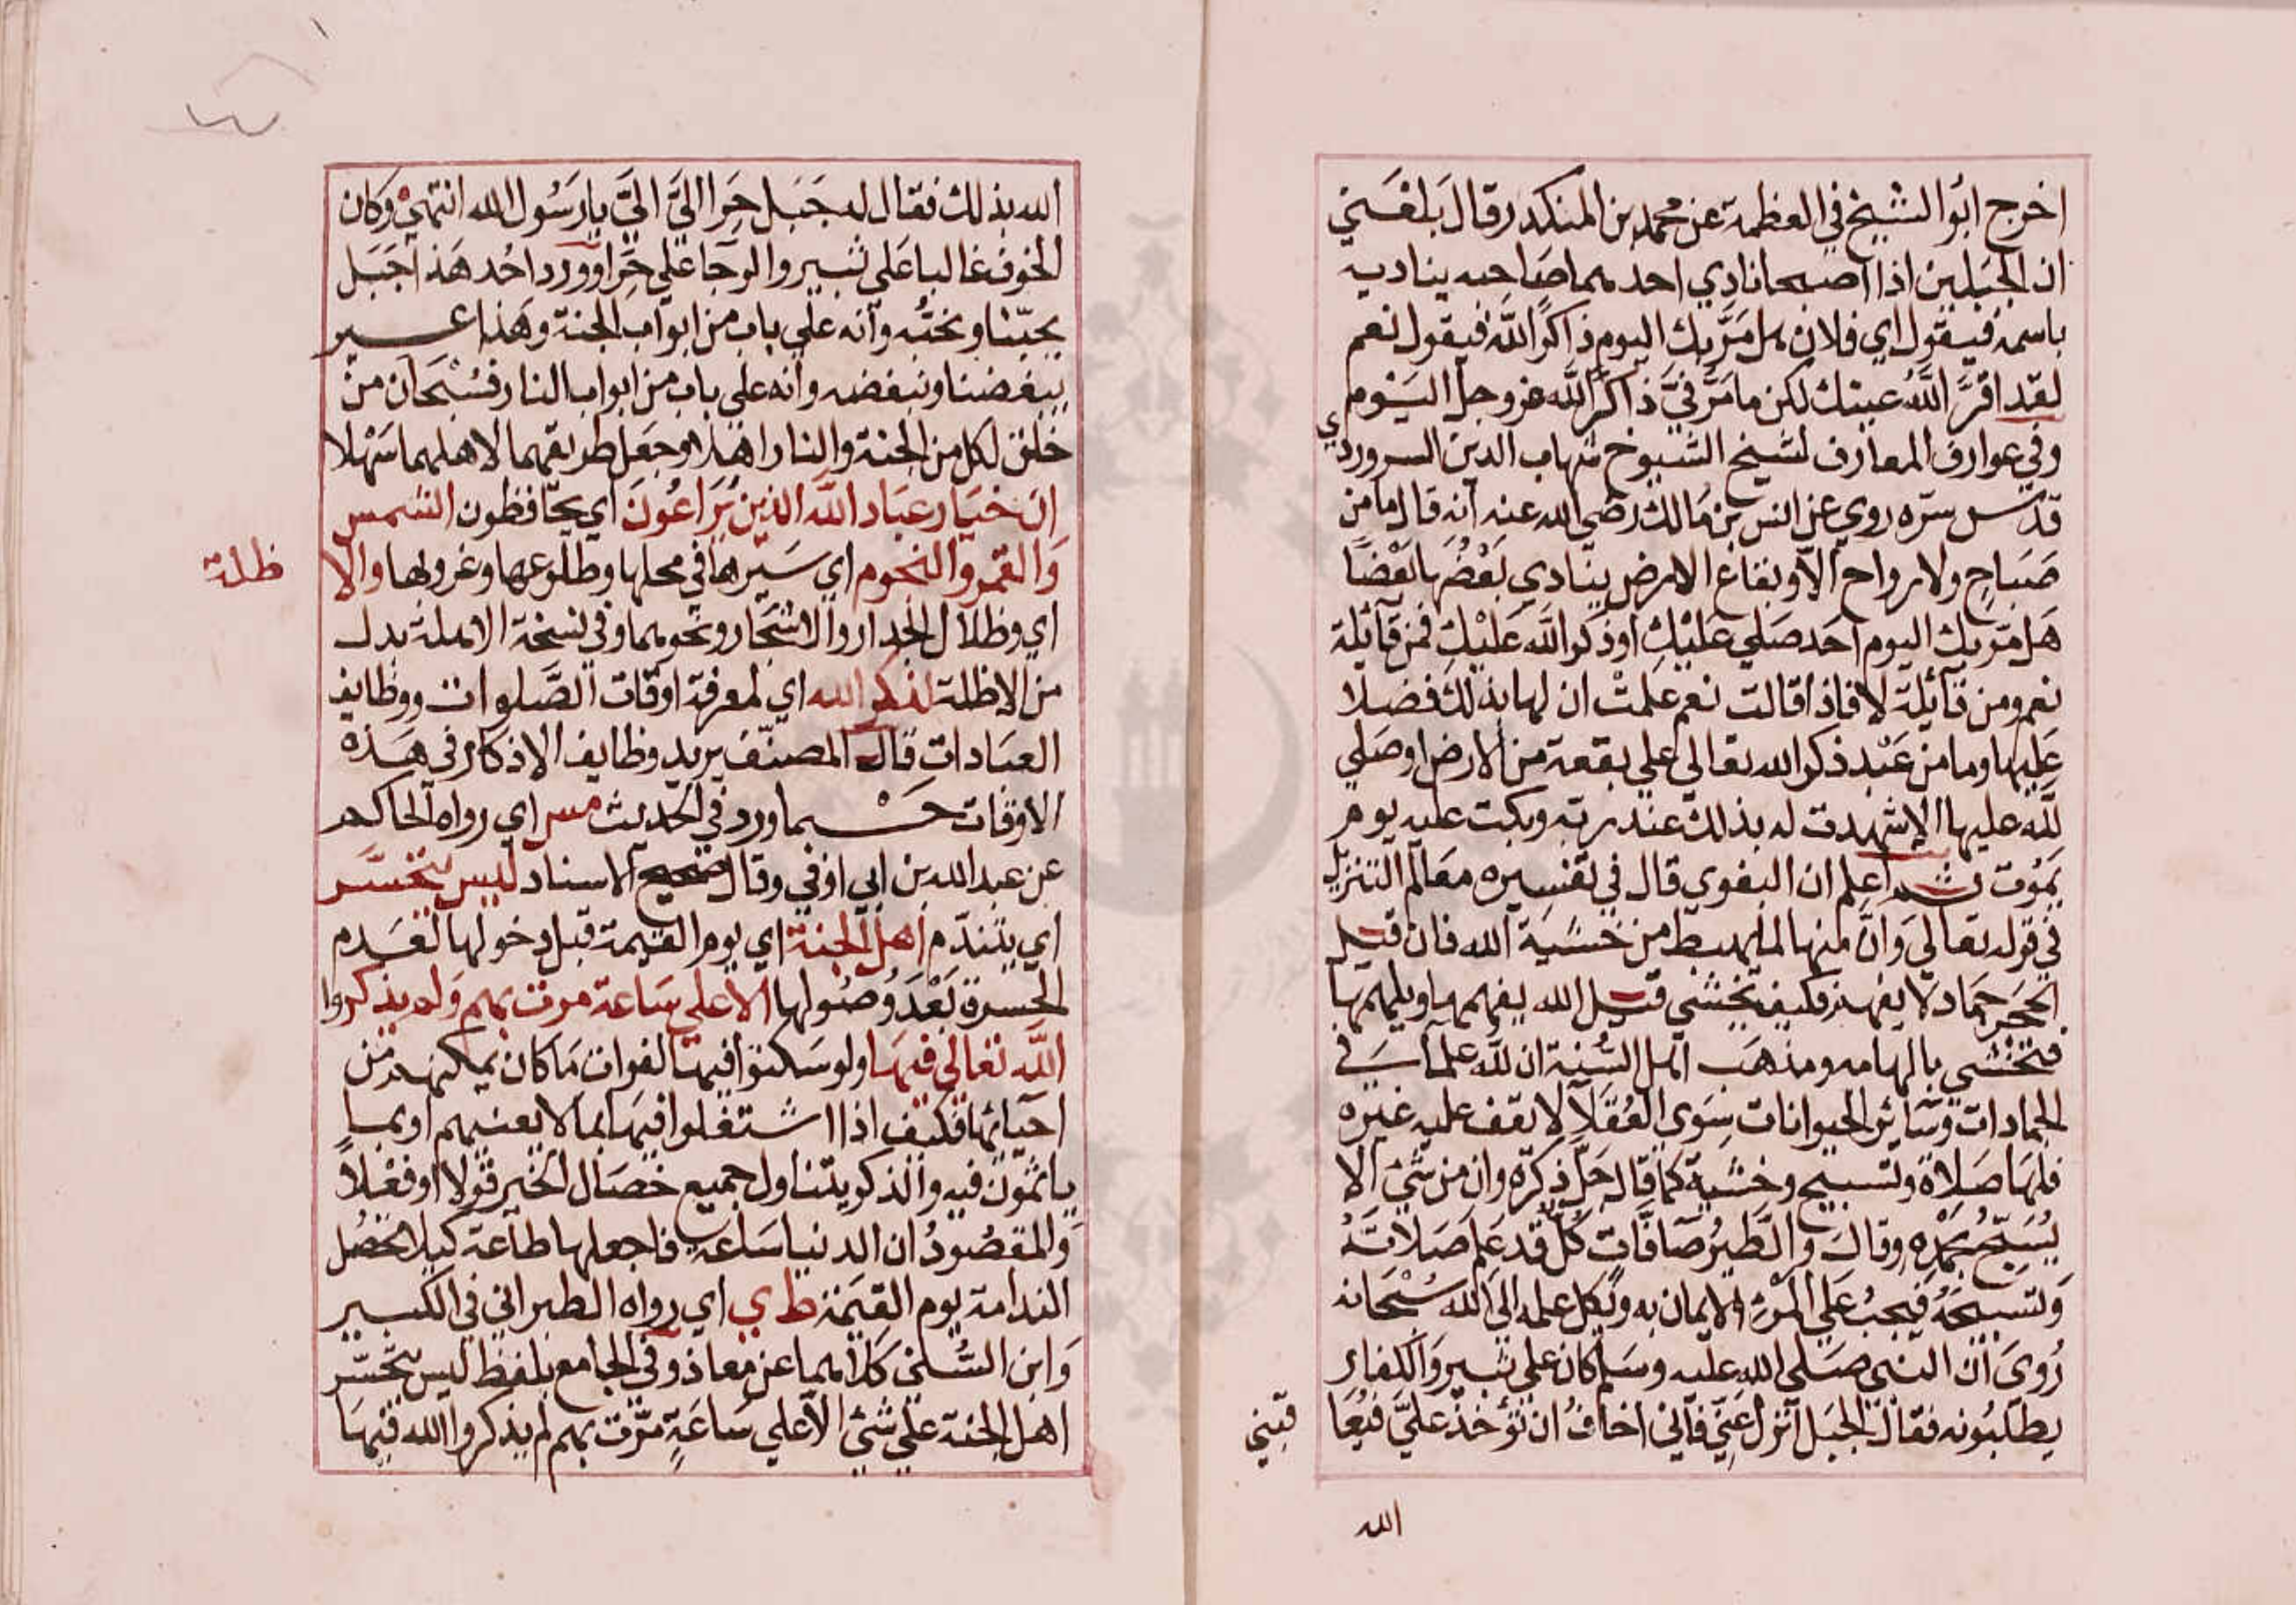 اخرج ابو الشيخ في العظمة عن محمد بن المنكدر قال بلغني
ان الجبلين اذا اصبحا نادي احدهما صاحبه يناديه
باسمه فيقول اي فلان هل مَرَّ بك اليوم ذاكرًا لله فيقول نعم
لقد اقرَّ اللهُ عينك لكن ما مَرَّ فيَّ ذاكر الله عز وجل اليَوم
وفي عوارف المعارف لشيخ الشيوخ شهاب الدين السروردي
قدس سره روي عن انس بن مالك رضي الله عنه انه قال ما من
صَبَاحٍ ولا رواح الّا وبقاع الارض ينادي بَعْضُها بَعْضًا
هَل مرّ بك اليوم احَد صَلي عَلَيْكِ او ذكر الله عَلَيْكِ فمن قآئلة
نعم ومن قآئلة لا فاذا قالت نعم علمتْ ان لها بذلك فضلا
عَليها وما من عَبْد ذكر الله تعالي علي بقعة من الارض او صَلي
لله عليها الا شهدت له بذلك عند ربه وبكت عليه يوم
يموت ثم اعلم ان البغوي قال في تفسيره معالم التنزيل
في قوله تعالي وَانَّ منها لما يهبط من خشية الله فان قيل
الحجر جمَاد لا يفهم فكيف يخشي قيل الله يفهمها ويلهمها
فتخشي بالهامه ومذهب اهل السُّنة ان لله علما في
الجمادات وسَائر الحيوانات سِوَي العُقَلآ لا يقف عليه غيره
فلهَا صَلاة وتسبيح وخشية كما قال جَلّ ذكره وان من شئ الا
يُسَبّحُ بحمدِه وقال وَالطيرُ صَآفّاتٍ كُلٌّ قد عَلِم صَلاتَهُ
وَتسبيحَهُ فيَجبُ عَلي المَرْء الايمان به ويَكِل علمه الي الله سُبْحَانه
رُويَ انّ النبي صَلي الله عليه وسَلم كان علي ثبير وَالكفار
يطلبُونه فقال الجبَل انزل عنّي فاني اخافُ ان تؤخذ عليَّ فيُعا
قبني
الله
الله بذلك فقال له جَبَل حِرا اليَّ اليَّ يا رَسُول الله انتهي وَكان
الخوف غالبا عَلي ثبير والرجا علي حِرا وورد احُد هَذا جَبَل
يحبّنا ونحبُّه وانه علي باب من ابواب الجنة وهَذا عير
يبغضنا ونبغضه وانه علي باب من ابواب النار فسُبْحَان من
خلق لكل من الجنة والنار اهلا وجعل طريقهما لاهلهما سَهْلا
ان خيَار عبَاد الله الذين يُرَاعُونَ اي يحَافظون الشمس
وَالقمر والنجوم اي سَيرها في محلها وطلوعها وغروبها والا
ظلة
اي وظلال الجدار والاشجَار ونحوهما وفي نسخة الاهلة بدل
من الاظلة لذكر الله اي لمعرفة اوقات الصَّلوات ووظايف
العبَادات قال المصنّف يريد وظايف الاذكار في هَذه
الاوقات حَسْبما ورد في الحديث مس اي رواه الحاكم
عن عبد الله بن ابي اوفي وقال صحيح الاسناد ليس يتحسّر
اي يتندّم اهل الجنة اي يوم القيمة قبل دخولها لعَدم
الحسرة بَعْدَ وُصُولها الا علي سَاعة مرت بهم وَلم يذكروا
الله تعَالي فيهَا ولو سكنوا فيها لفوات مَا كان يمكنهم من
احيائها فكيف اذا اشتغلوا فيهَا بما لا يعنيهم او بما
ياثمون فيه والذكر يتناول جميع خصَال الخير قولا او فعْلاً
وَالمقصُودُ ان الدنيا سَاعة فاجعلها طاعة كيلا تحصُل
الندامة يوم القيَمة ط ي اي رواه الطبراني في الكبير
وَابن السُّني كلاهما عن معاذ وفي الجامع بلفظ ليس يتحسّر
اهل الجنة علي شئ الّا علي سَاعَةٍ مَرَّت بهم لم يذكروا الله فيهَا